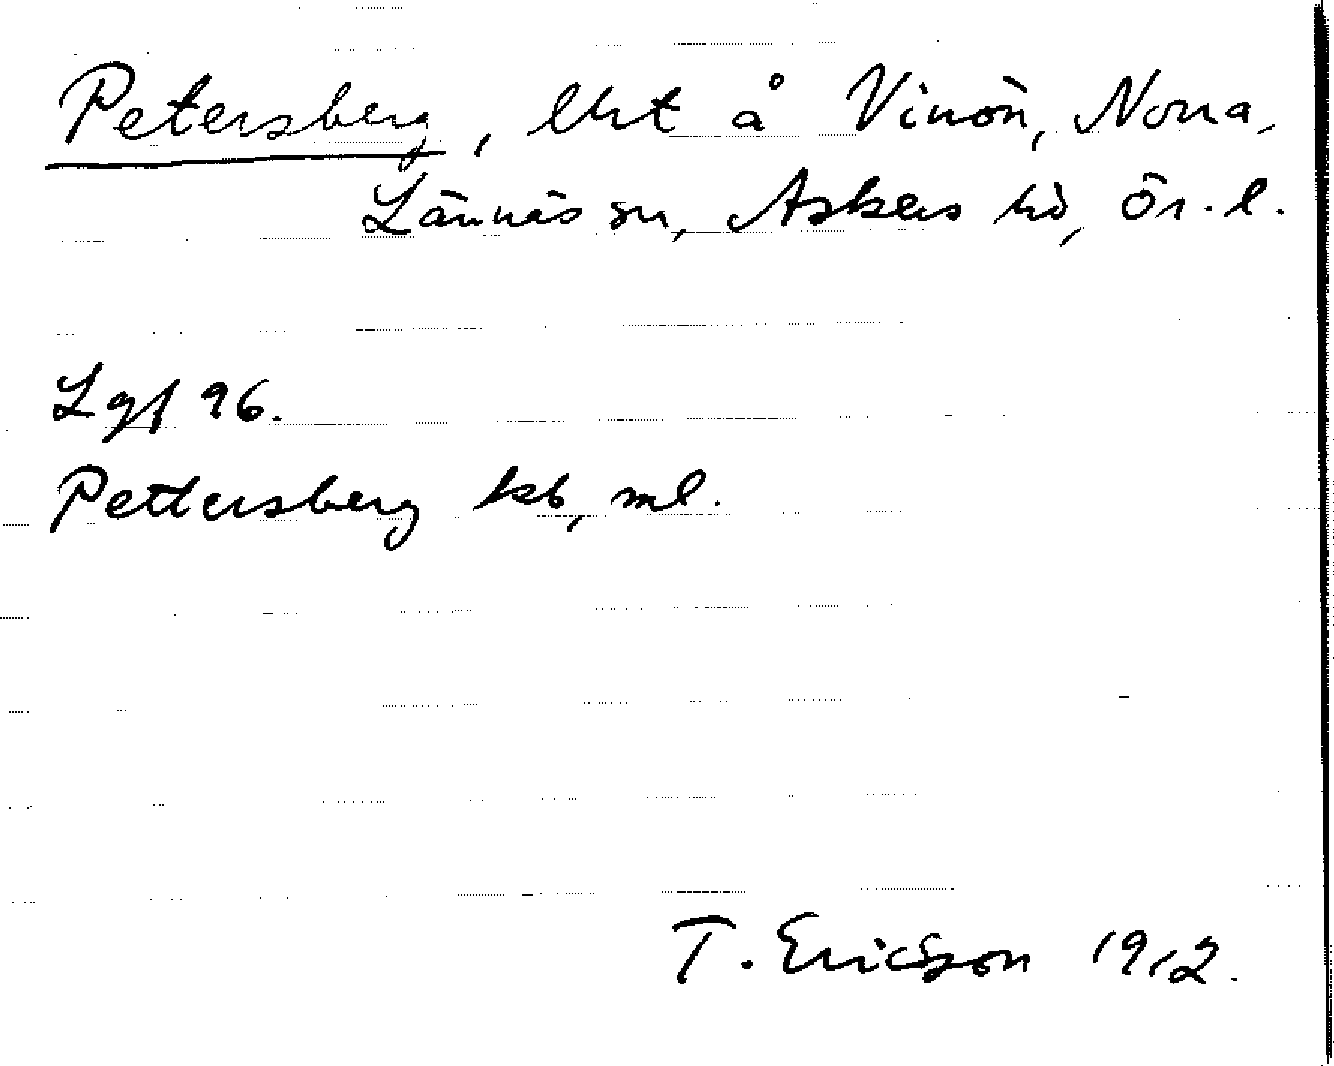 Petersberg, lht å Vinön, Norra,
Lännäs sn, Askers hd, Ör. l.
Lgf 96.
Pettersberg kb, ml.
T. Ericsson 1912.